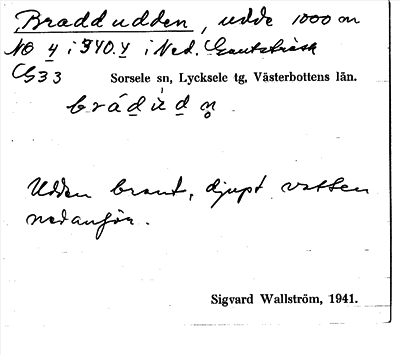 Braddudden, udde 1000 m
NO 4 i 340.4 i Ned. Gautsträsk
C 33 Sorsele sn, Lycksele tg, Västerbottens län.
brádùdn
Udden brant, djupt vatten
nedanför.
Sigvard Wallström, 1941.